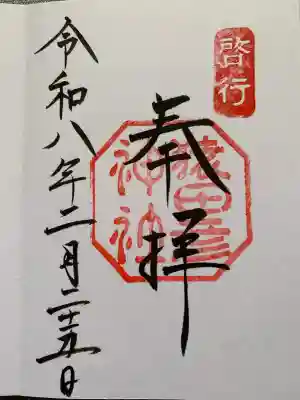 啓行
奉拝
猿田彦
神社
令和八年二月二十五日